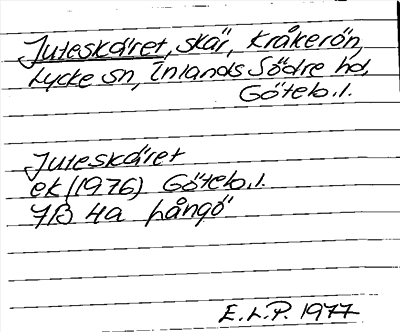 Juteskäret, skär, Kråkerön,
Lycke sn, Inlands Södre hd,
Götebo.l.
Juteskäret
ek (1976) Götebo.l.
7B 4a Långö
E.L.P. 1977